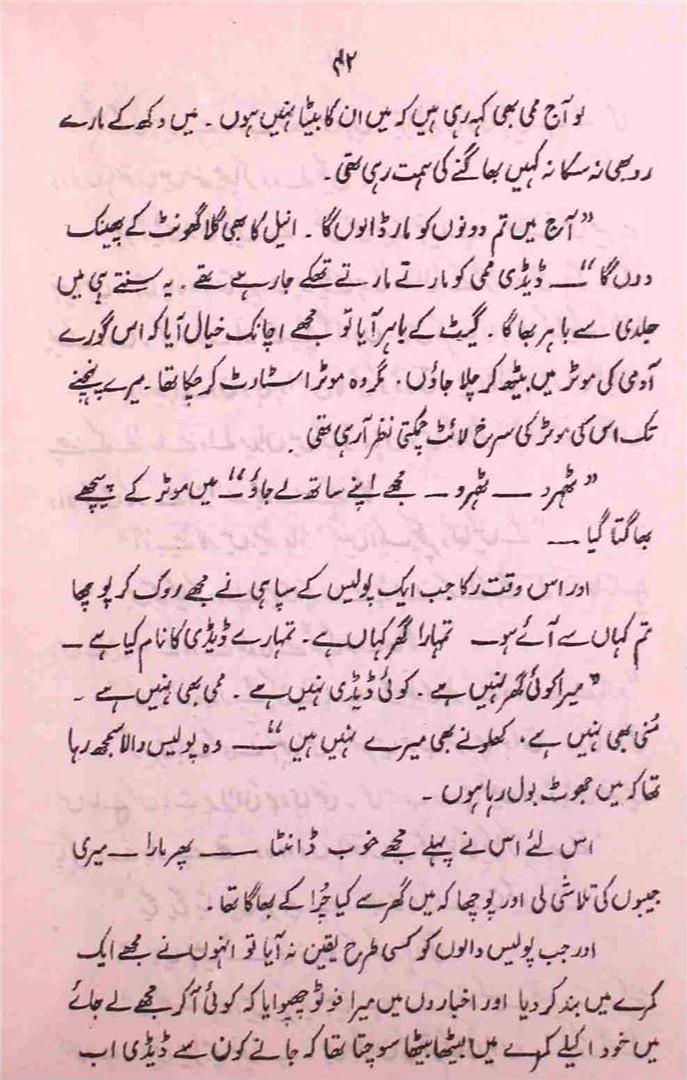 ۴۲
لو آج ممی بھی کہہ رہی ہیں کہ میں ان کا بیٹا نہیں ہوں۔ میں دکھ کے مارے
رو بھی نہ سکا نہ کہیں بھاگنے کی سمت رہی تھی۔
”آج میں تم دونوں کو مار ڈالوں گا۔ انیل کا بھی گلا گھونٹ کے پھینک
دوں گا“ــــ ڈیڈی ممی کو مارتے مارتے تھکے جا رہے تھے۔ یہ سنتے ہی میں
جلدی سے باہر بھاگا۔ گیٹ کے باہر آیا تو مجھے اچانک خیال آیا کہ اس گورے
آدمی کی موٹر میں بیٹھ کر چلا جاؤں۔ مگر وہ موٹر اسٹارٹ کر چکا تھا۔ میرے پہنچنے
تک اس کی موٹر کی سرخ لائٹ چمکتی نظر آ رہی تھی۔
”ٹھہرو ــــ ٹھہرو ــ مجھے اپنے ساتھ لے جاؤ“ــ میں موٹر کے پیچھے
بھاگتا گیا ــــ
اور اس وقت رکا جب ایک پولیس کے سپاہی نے مجھے روک کر پوچھا
تم کہاں سے آئے ہو ــ تمہارا گھر کہاں ہے۔ تمہارے ڈیڈی کا نام کیا ہے ــ
”میرا کوئی گھر نہیں ہے۔ کوئی ڈیڈی نہیں ہے۔ ممی بھی نہیں ہے۔
مُنی بھی نہیں ہے۔ کھلونے بھی میرے نہیں ہیں“ــــ وہ پولیس والا سمجھ رہا
تھا کہ میں جھوٹ بول رہا ہوں۔
اس لئے اس نے پہلے مجھے خوب ڈانٹا ــــ پھر مارا ــ میری
جیبوں کی تلاشی لی اور پوچھا کہ میں گھر سے کیا چُرا کے بھاگا تھا۔
اور جب پولیس والوں کو کسی طرح یقین نہ آیا تو انہوں نے مجھے ایک
کمرے میں بند کر دیا اور اخباروں میں میرا فوٹو چھپوایا کہ کوئی آ کر مجھے لے جائے
میں خود اکیلے کمرے میں بیٹھا بیٹھا سوچتا تھا کہ جانے کون سے ڈیڈی اب